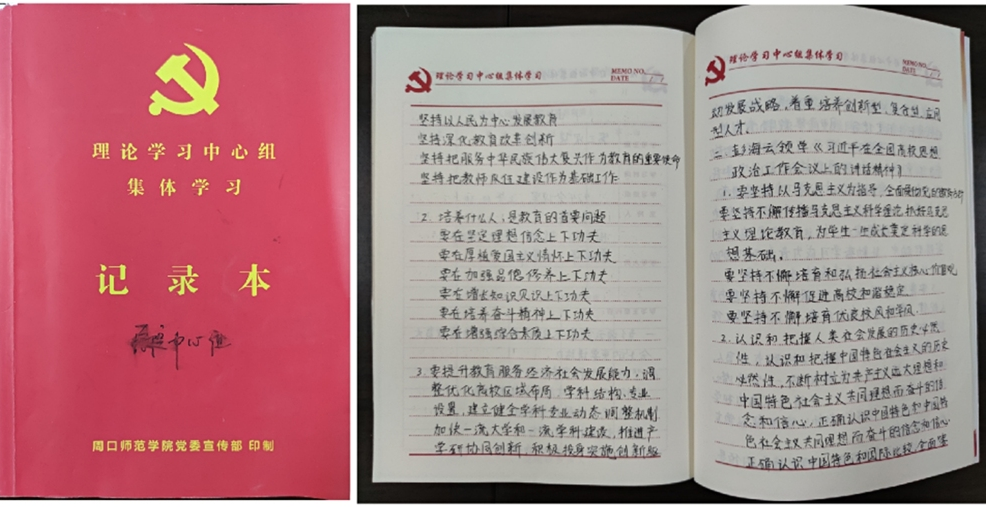 理论学习中心组
集体学习
记录本
中心组
周口师范学院党委宣传部 印制
理论学习中心组集体学习
MEMO NO.
DATE
坚持以人民为中心发展教育
坚持深化教育改革创新
坚持把服务中华民族伟大复兴作为教育的重要使命
坚持把教师队伍建设作为基础工作
2. 培养什么人,是教育的首要问题
要在坚定理想信念上下功夫
要在厚植爱国主义情怀上下功夫
要在加强品德修养上下功夫
要在增长知识见识上下功夫
要在培养奋斗精神上下功夫
要在增强综合素质上下功夫
3. 要提升教育服务经济社会发展能力,调
整优化高校区域布局、学科结构、专业
设置,建立健全学科专业动态调整机制
加快一流大学和一流学科建设,推进产
学研协同创新,积极投身实施创新驱
理论学习中心组集体学习
MEMO NO.
DATE
动发展战略,着重培养创新型、复合型、应用
型人才。
二、彭海云领学《习近平在全国高校思想
政治工作会议上的讲话精神》
1. 要坚持以马克思主义为指导,全面贯彻党的教育方针
要坚持不懈传播马克思主义科学理论,抓好马克思
主义理论教育,为学生一生成长奠定科学的思
想基础。
要坚持不懈培育和弘扬社会主义核心价值观
要坚持不懈促进高校和谐稳定
要坚持不懈培育优良校风和学风
2. 认识和把握人类社会发展的历史必然
性,认识和把握中国特色社会主义的历史
必然性,不断树立为共产主义远大理想和
中国特色社会主义共同理想而奋斗的信
念和信心,正确认识中国特色和中国特
色社会主义共同理想而奋斗的信念和信心
正确认识中国特色和国际比较,全面客